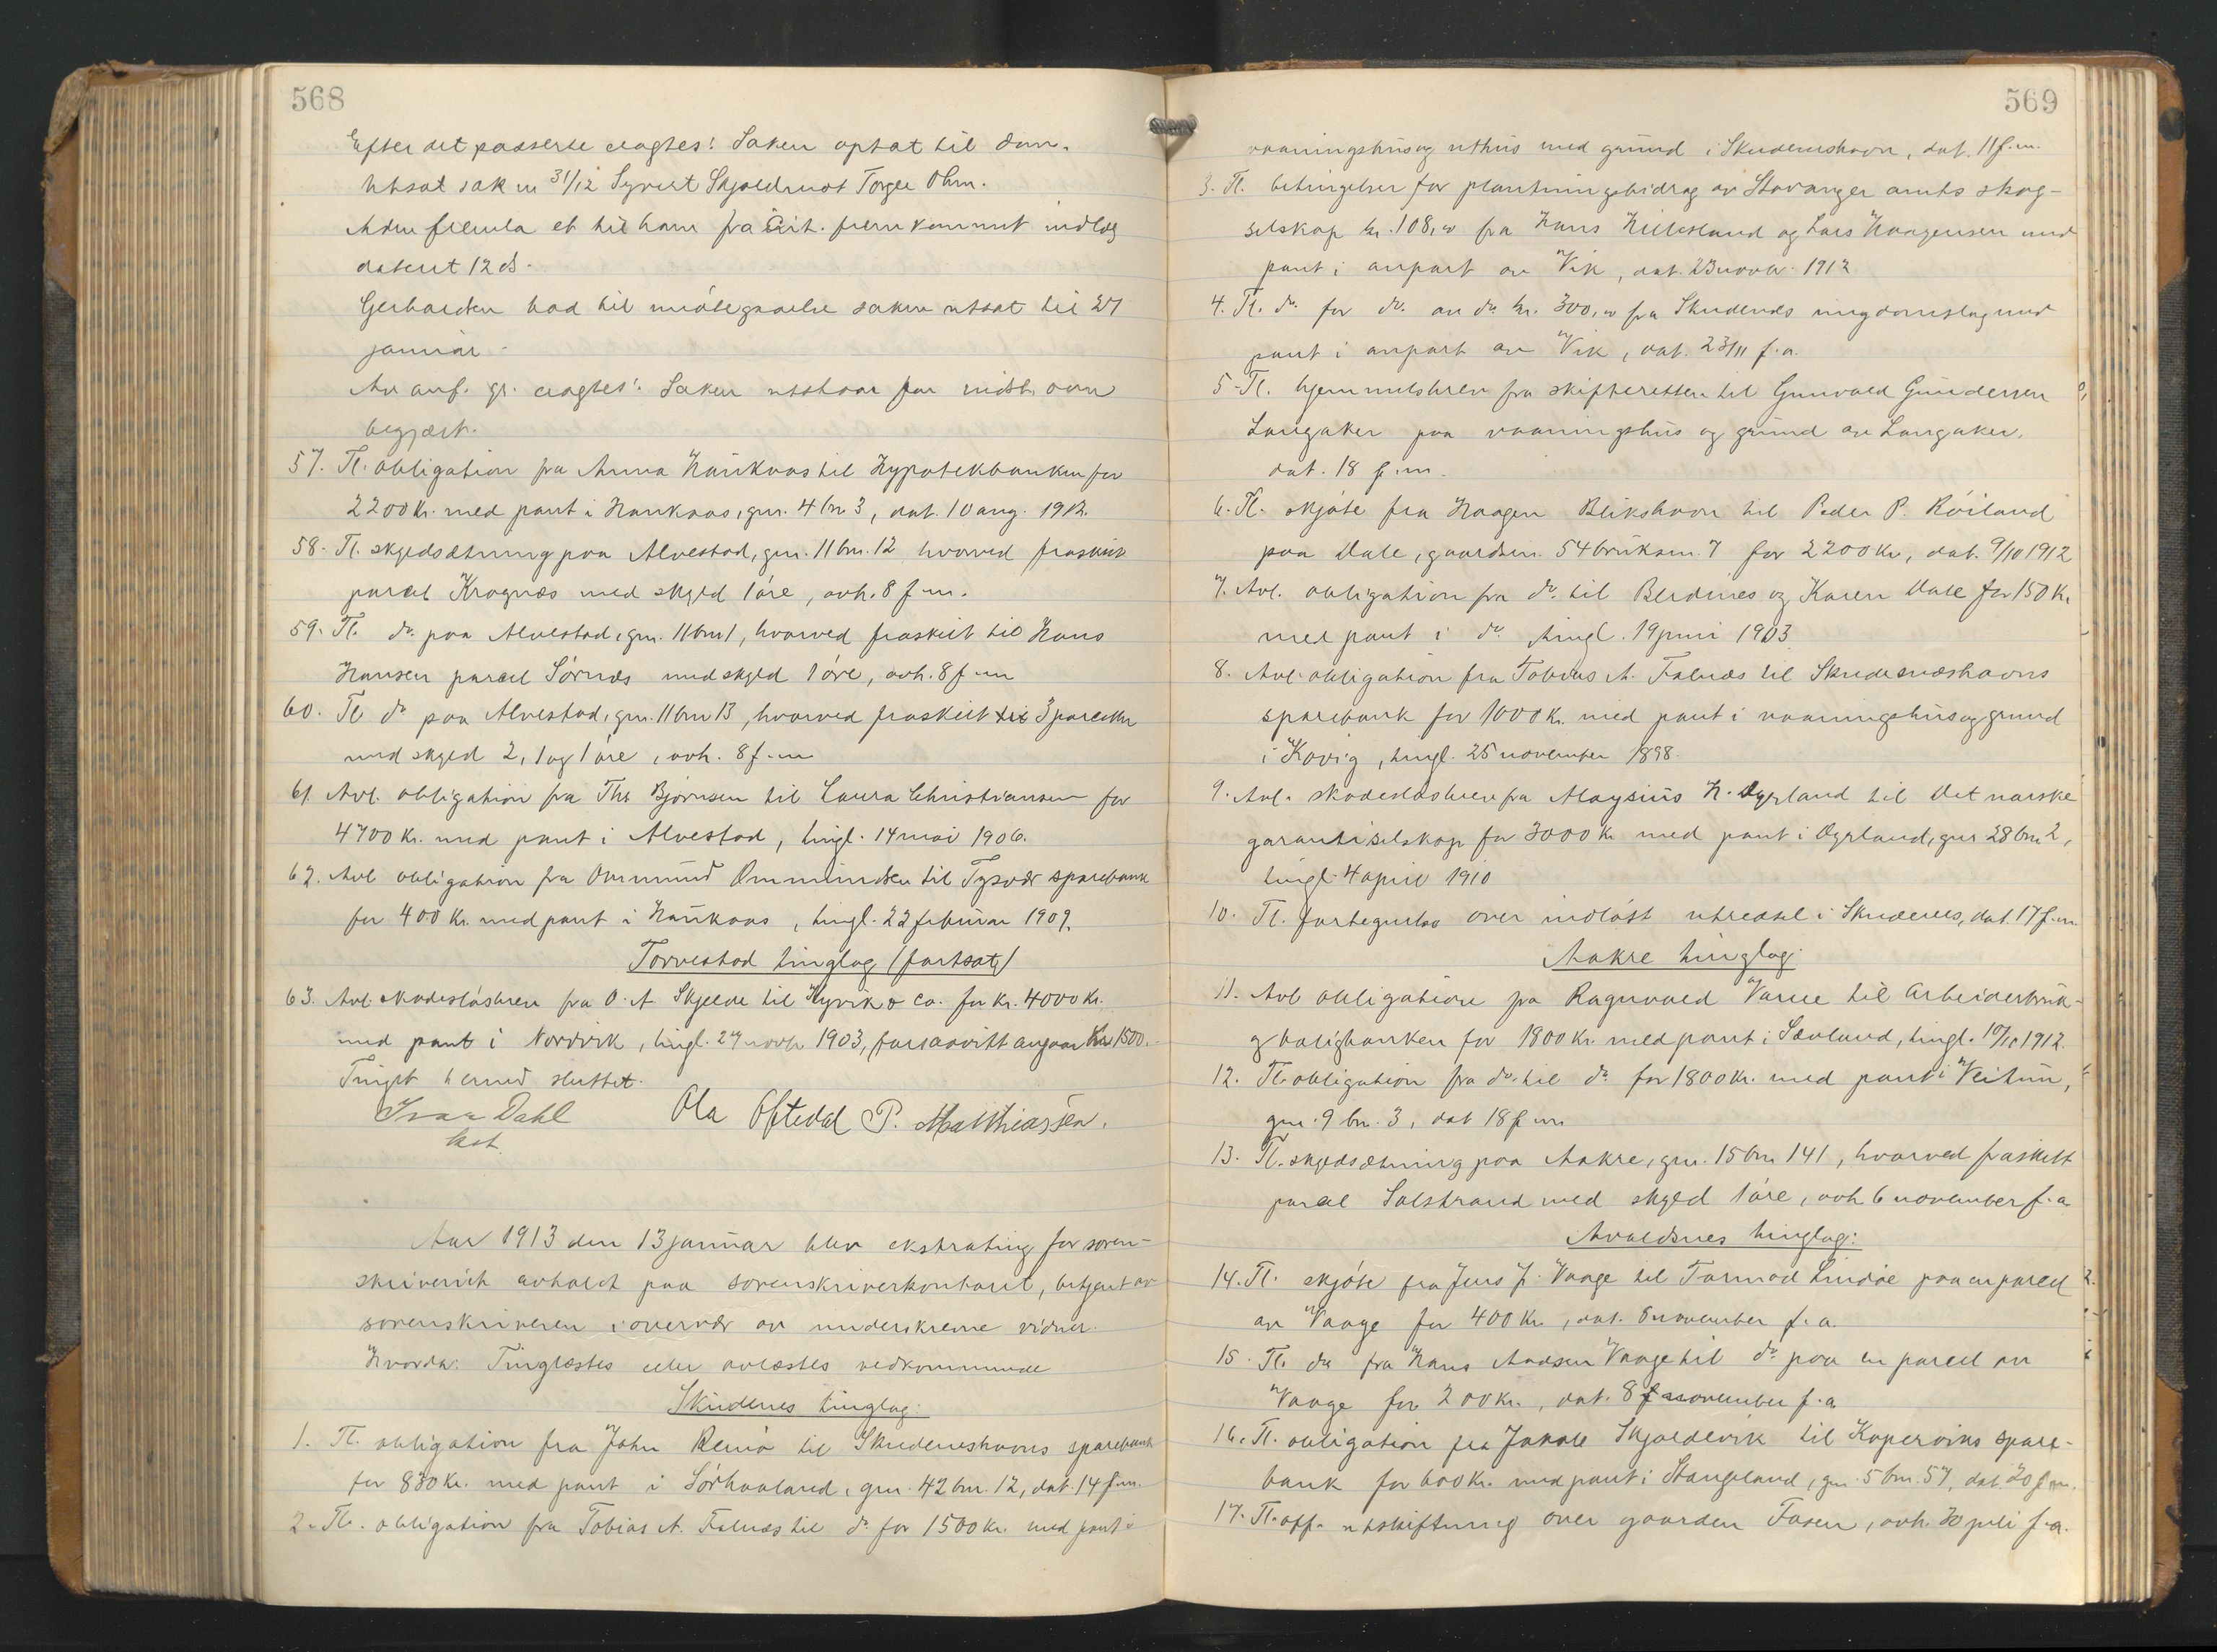 568
Efter det passerte eragtes: Saken optat til dom.
Utsat sak nr 31/12 Syvert Skjoldmot Torger Ohm.
Adm fremla et til ham fra Cit. fremkommet indlæg
datert 12 ds.
Gerhardsen bad til imøtegaaelse saken utsat til 27
januar -
Av anf. gr. eragtes: Saken utstaar som indst. ovm
begjært.
57. Tl. obligation fra Anna Haukaas til Hypotekbanken for
2200 kr. med pant i Haukaas, gnr. 4 bn 3, dat. 10 aug. 1912.
58. Tl. skyldsætning paa Alvestad, gnr. 11 bnr. 12 hvorved fraskilt
parcel Krognæs med skyld 1 øre, avh. 8 f.m.
59. Tl. do paa Alvestad, gnr. 11 bnr 1, hvorved fraskilt til Hans
Hansen parcel Sørnæs med skyld 1 øre, avh. 8 f.m
60. Tl do paa Alvestad, gnr. 11 bnr 13, hvorved fraskilt 3 parceller
med skyld 2, 1 og 1 øre, avh. 8 f.m
61. Avl. obligation fra Ths Bjørnsen til Laura Christiansen for
4700 kr. med pant i Alvestad, tingl. 14 mai 1906.
62. Avl obligation fra Ommund Ommundsen til Tysvær sparebank
for 400 kr. med pant i Haukaas, tingl. 22 februar 1909.
Torvestad tinglag (fortsat)
63. Avl. skadesløsbrev fra O. A Skjelde til Kyvik & Co. for kr. 4000 kr.
med pant i Nordvik, tingl. 27 novbr 1903, forsaavitt angaar kr 1500.
Tinget hermed sluttet.
Ivar Dahl Ola Oftedal P. Matthiassen.
kst.
Aar 1913 den 13 januar blev ekstrating for soren-
skriveriet avholdt paa sorenskriverkontoret, betjent av
sorenskriveren i overvær av underskrevne vidner.
Hvorda: Tinglæstes eller avlæstes vedkommende
Skudenes tinglag:
1. Tl. obligation fra John Remø til Skudeneshavns sparebank
for 830 kr. med pant i Sørhaaland, gnr. 42 bnr. 12, dat. 14 f.m.
2. Tl. obligation fra Tobias A. Falnæs til do for 1500 kr. med pant i
569
vaaningshus og uthus med grund i Skudeneshavn, dat. 11 f.m.
3. Tl. betingelser for plantningsbidrag av Stavanger amts skog-
selskap kr. 108,00 fra Hans Hillesland og Lars Haagensen med
pant i anpart av Vik, dat. 23 novbr. 1912
4. Tl. do for do. av do kr. 300,00 fra Skudenæs ungdomslag med
pant i anpart av Vik, dat. 23/11 f.a.
5. Tl. hjemmelsbrev fra skifteretten til Gunvald Gundersen
Langaker paa vaaningshus og grund av Langaker,
dat. 18 f.m.
6. Tl. skjøte fra Haagen Blikshavn til Peder P. Røiland
paa Dale, gaardsnr. 54 bruksnr. 7 for 2200 kr, dat. 9/10 1912
7. Avl. obligation fra do til Berdines og Karen Dale for 150 kr
med pant i do tingl. 19 juni 1903
8. Avl obligation fra Tobias A. Falnæs til Skudesnæshavns
sparebank for 1000 kr. med pant i vaaningshus og grund
i Kovig, tingl. 25 november 1898.
9. Avl. skadesløsbrev fra Aloysius H. Øygland til Det norske
garantiselskap for 3000 kr med pant i Øygland, gnr 28 bnr 2,
tingl. 4 april 1910
10. Tl. fortegnelse over indløst utredsel i Skudenes, dat. 17 f.m.
Aakre tinglag
11. Avl obligation fra Ragnvald Varne til Arbeiderbruk-
og boligbanken for 1800 kr. med pant i Sævland, tingl. 10/10 1912.
12. Tl. obligation fra do. til do for 1800 kr. med pant i Veitun,
gnr. 9 bn. 3, dat 18 f.m
13. Tl. skyldsætning paa Aakre, gnr. 15 bnr 141, hvorved fraskilt
parcel Solstrand med skyld 1 øre, avh 6 november f.a
Avaldsnes tinglag:
14. Tl. skjøte fra Jens J. Vaage til Tormod Lindøe paa en parcel
av Vaage for 400 kr, dat. 8 november f.a.
15. Tl. do fra Hans Aadsen Vaage til do paa en parcel av
Vaage for 200 kr., dat. 8 november f.a
16. Tl. obligation fra Jakob Skjoldevik til Kopervik spare-
bank for 600 kr. med pant i Stangeland, gnr 5 bnr. 57, dat 20 f.m.
17. Tl. off. utskiftning over gaarden Fosen, avh. 30 juli f.a.